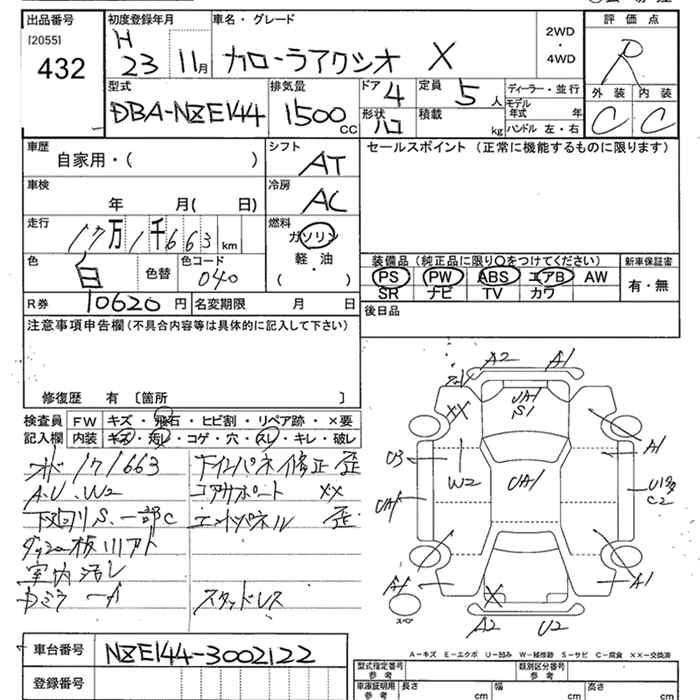 出品番号 初度登録年月 車名・グレード 2WD・4WD 評価点
[2055]
432
H 23 11月 カローラアクシオ X R
型式 排気量 ドア 定員 ディーラー・並行 外装 内装
DBA-NZE144 1500 CC 4 5人 モデル年式 年 C C
形状 ハコ 積載 kg ハンドル 左・右
車歴 シフト セールスポイント (正常に機能するものに限ります)
自家用・( ) AT
車検 冷房
年 月( 日) AC
走行 燃料
17万1千663 km ガソリン
軽・油
( )
色 色替 色コード
白 040
装備品 (純正品に限り○をつけてください) 新車保証書
PS PW ABS エアB AW 有・無
SR ナビ TV カワ
R券 10620円 名変期限 月 日 後日品
注意事項申告欄 (不具合内容等は具体的に記入して下さい)
修復歴 有 〔箇所 〕
検査員 FW キズ・飛石・ヒビ割・リペア跡・×要
記入欄 内装 キズ・汚レ・コゲ・穴・スレ・キレ・破レ
171663 修正 歪
A.U.W2 コアサポート ××
下廻リS.一部C エンドパネル 歪
室内汚レ
スタッドレス
A2 A1
××
UA1
S1
U3 A1
W2 UA1
UA1 C2
A1 A1
スペア
X
A2 U2
A-キズ E-エクボ U-凹み W-補修跡 S-サビ C-腐食 ××-交換済
車台番号 NZE144-3002122
登録番号
型式指定番号 参考 類別区分番号 参考
車庫証明用 参考 長さ cm 幅 cm 高さ cm